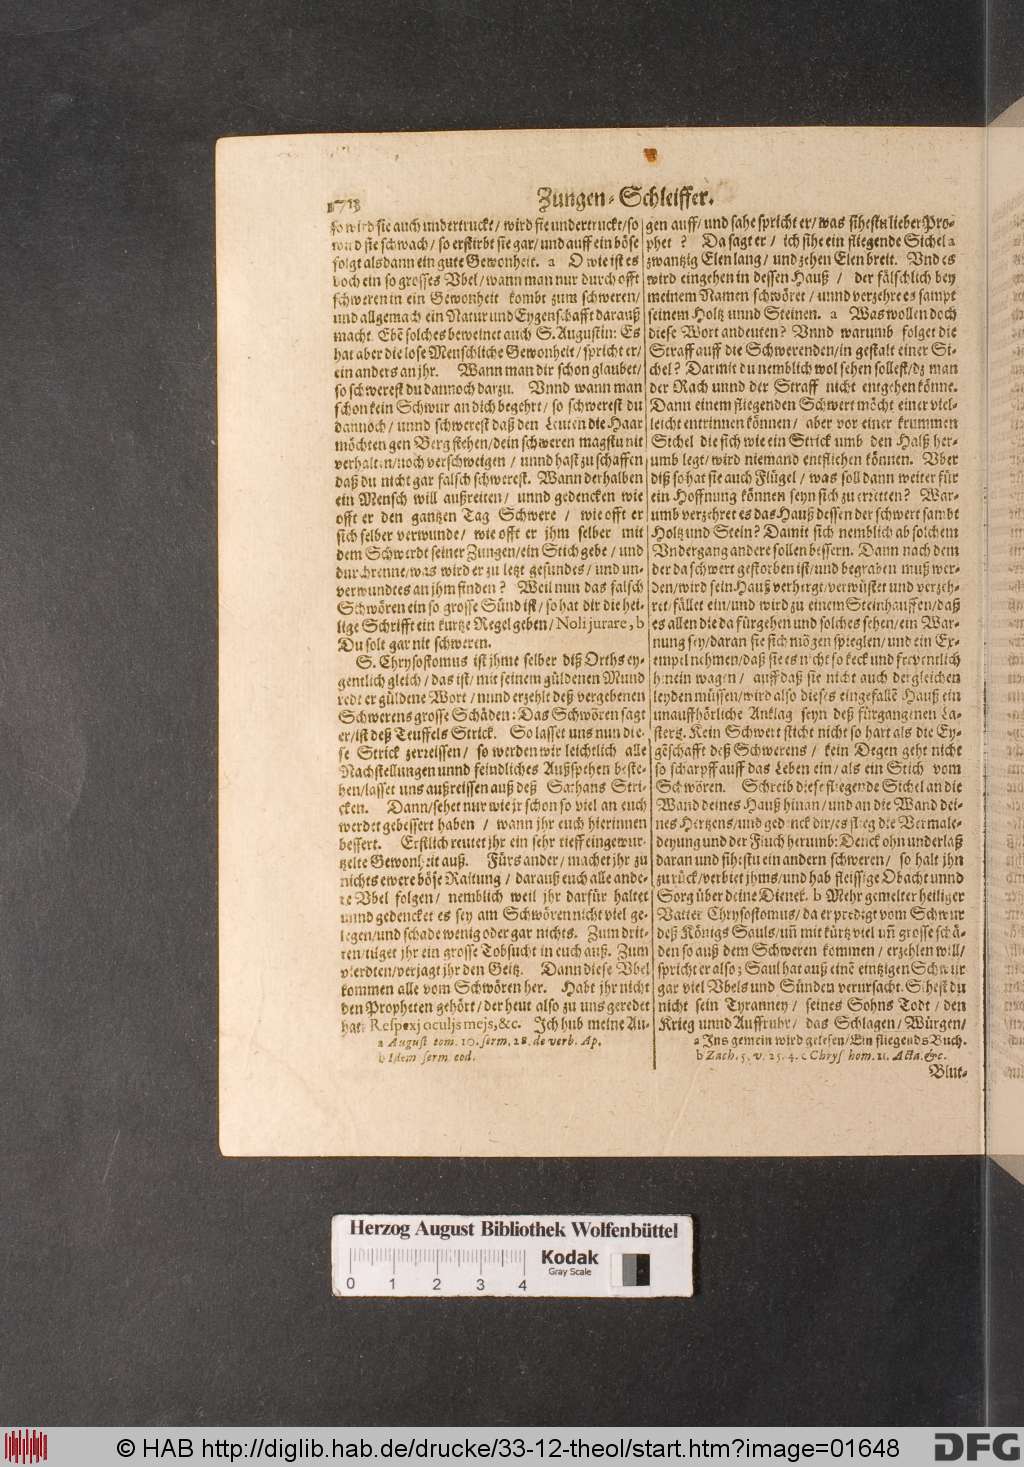 Zungen-Schleiffer.
so wird sie auch undertruckt/ wird sie undertruckt/ so
wird sie schwach/ so erstirbt sie gar/ und auff ein böse
folgt als dann ein gute Gewonheit. a O wie ist es
doch ein so grosses Ubel/ wann man nur durch offt
schweren in ein Gewonheit kombt zum schweren/
und allgemach ein Natur und Eygenschafft darauß
macht. Ebē solches beweinet auch S. Augustin: Es
hat aber die lose Menschliche Gewonheit/ spricht er/
ein anders an jhr. Wann man dir schon glaubet/
so schwerest du dannoch darzu. Unnd wann man
schon kein Schwur an dich begehrt/ so schwerest du
dannoch/ unnd schwerest daß den Leuten die Haar
möchten gen Berg stehen/ dein schweren magstu nit
verhalten/ noch verschweigen/ unnd hast zu schaffen
daß du nicht gar falsch schwerest. Wann derhalben
ein Mensch will außreiten/ unnd gedencken wie
offt er den gantzen Tag Schwere/ wie offt er
sich selber verwunde/ wie offt er jhm selber mit
dem Schwerdt seiner Zungen/ ein Stich gebe/ und
durchrenne/ was wird er zu letzt gesundes/ und un-
verwundtes an jhm finden? Weil nun das falsch
Schwören ein so grosse Sünd ist/ so hat dir die hei-
lige Schrifft ein kurtze Regel geben/ Noli jurare, b
Du solt gar nit schweren.
S. Chrysostomus ist jhme selber diß Orths ey-
gentlich gleich/ das ist/ mit seinem güldenen Mund
redt er güldene Wort/ nund erzehlt deß vergebenen
Schwerens grosse Schäden: Das Schwören sagt
er/ ist deß Teuffels Strick. So lasset uns nun die-
se Strick zerreissen/ so werden wir leichtlich alle
Nachstellungen unnd feindliches Außspehen beste-
hen/ lasset uns außreissen auß deß Sathans Stri-
cken. Dann/ sehet nur wie jr schon so viel an euch
werdet gebessert haben/ wann jhr euch hierinnen
bessert. Erstlich reutet jhr ein sehr tieff eingewur-
tzelte Gewonheit auß. Fürs ander/ machet jhr zu
nichts ewere böse Raitung/ darauß euch alle ande-
re Ubel folgen/ nemblich weil jhr darfür haltet
unnd gedencket es sey am Schwören nicht viel ge-
legen/ und schade wenig oder gar nichts. Zum drit-
ten/ tilget jhr ein grosse Tobsucht in euch auß. Zum
vierdten/ verjagt jhr den Geitz. Dann diese Ubel
kommen alle vom Schwören her. Habt jhr nicht
den Propheten gehört/ der heut also zu uns geredet
hat: Respexi oculis meis, &c. Ich hub meine Au-
a August tom. 10. serm. 28. de verb. Ap.
b Idem serm. eod.
gen auff/ und sahe spricht er/ was sihestu lieber Pro-
phet? Da sagt er/ ich sihe ein fliegende Sichel a
zwantzig Elen lang/ und zehen Elen breit. Und es
wird eingehen in dessen Hauß/ der fälschlich bey
meinem Namen schwöret/ unnd verzehre es sampt
seinem Holtz unnd Steinen. a Was wollen doch
diese Wort andeuten? Unnd warumb folget die
Straff auff die Schwerenden/ in gestalt einer Si-
chel? Darmit du nemblich wol sehen sollest/ dz man
der Rach unnd der Straff nicht entgehen könne.
Dann einem fliegenden Schwert möcht einer viel-
leicht entrinnen können/ aber vor einer krummen
Sichel die sich wie ein Strick umb den Halß her-
umb legt/ wird niemand entfliehen können. Uber
diß so hat sie auch Flügel/ was soll dann weiter für
ein Hoffnung können seyn sich zu erretten? War-
umb verzehret es das Hauß dessen der schwert sambt
Holtz und Stein? Damit sich nemblich ab solchem
Undergang andere sollen bessern. Dann nach dem
der da schwert gestorben ist/ und begraben muß wer-
den/ wird sein Hauß verhergt/ verwüstet und verzeh-
ret/ fället ein/ und wird zu einem Steinhauffen/ daß
es allen die da fürgehen und solches sehen/ ein War-
nung sey/ daran sie sich mögen spieglen/ und ein Ex-
empel nehmen/ daß sie es nicht so keck und freventlich
hinein wagen/ auff daß sie nicht auch dergleichen
leyden müssen/ wird also dieses eingefallē Hauß ein
unauffhörliche Anklag seyn deß fürgangenen La-
sters. Kein Schwert sticht nicht so hart als die Ey-
gēschafft deß Schwerens/ kein Degen geht nicht
so scharpff auff das Leben ein/ als ein Stich vom
Schwören. Schreib diese fliegende Sichel an die
Wand deines Hauß hinan/ und an die Wand dei-
nes Hertzens/ und gedenck dir/ es flieg die Vermale-
deyung und der Fluch herumb: Denck ohn underlaß
daran und sihestu ein andern schweren/ so halt jhn
zu rück/ verbiet jhms/ und hab fleissige Obacht unnd
Sorg über deine Diener. b Mehr gemelter heiliger
Vatter Chrysostomus/ da er predigt vom Schwur
deß Königs Sauls/ uñ mit kürtz viel uñ grosse schä-
den so auß dem Schweren kommen/ erzehlen will/
spricht er also; Saul hat auß einē eintzigen Schwur
gar viel Ubels und Sünden verursacht. Sihest du
nicht sein Tyranney/ seines Sohns Todt/ den
Krieg unnd Auffruhr/ das Schlagen/ Würgen/
a Ins gemein wird gelesen/ Ein fliegends Buch.
b Zach. 5. v. 25. 4. c Chrys hom. 11. Acta. &c.
Blut-
Herzog August Bibliothek Wolfenbüttel
0 1 2 3 4
Kodak
Gray Scale
© HAB http://diglib.hab.de/drucke/33-12-theol/start.htm?image=01648
DFG